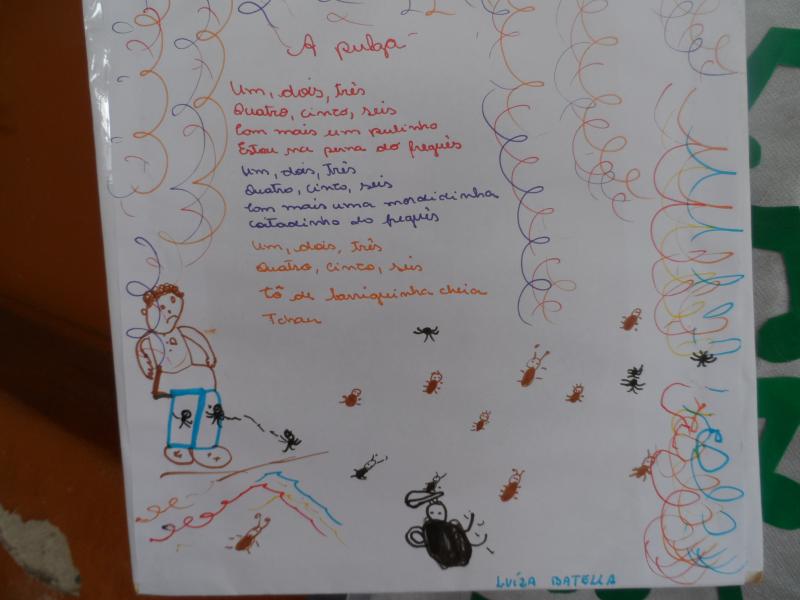 A pulga
Um, dois, três
Quatro, cinco, seis
Com mais um pulinho
Estou na perna do freguês
Um, dois, três
Quatro, cinco, seis
Com mais uma mordidinha
Coitadinho do freguês
Um, dois, três
Quatro, cinco, seis
Tô de barriguinha cheia
Tchau
LUÍZA BATELLA